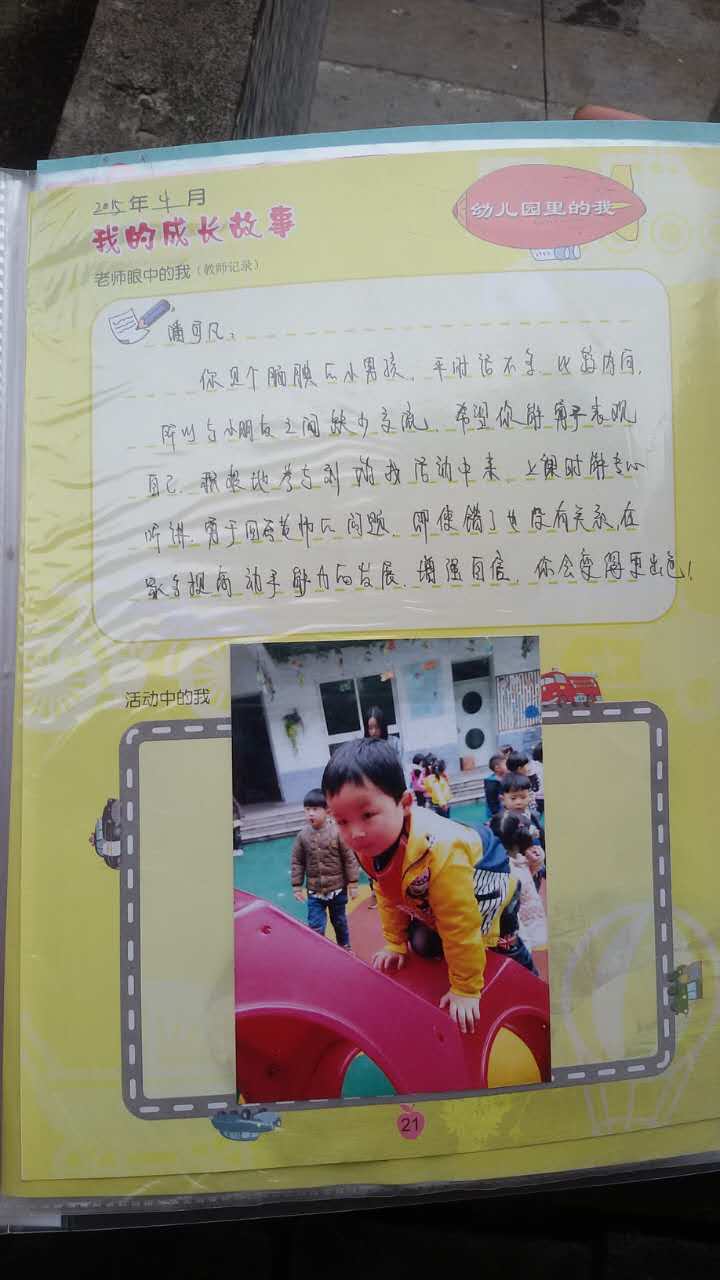 2015年4月
幼儿园里的我
我的成长故事
老师眼中的我（教师记录）
潘可凡：
你是个腼腆的小男孩，平时话不多，比较内向，
所以与小朋友之间缺少交流，希望你能勇于表现
自己，积极地参与到游戏活动中来，上课时能专心
听讲，勇于回答老师的问题，即使错了也没有关系，在
多提高动手能力的发展，增强自信，你会变得更出色！
活动中的我
21